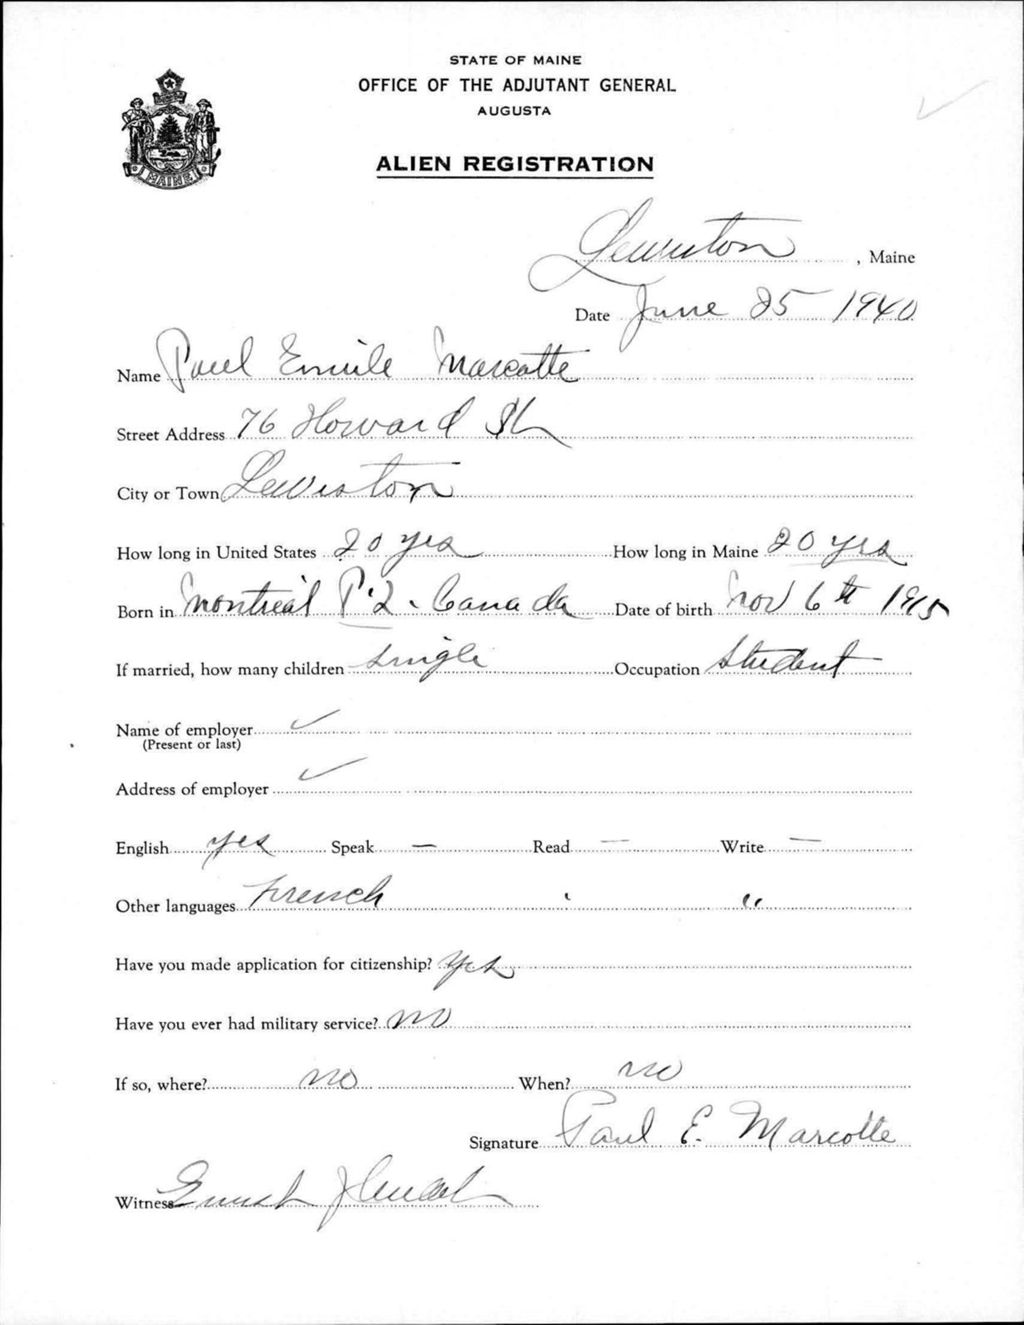 STATE OF MAINE
OFFICE OF THE ADJUTANT GENERAL
AUGUSTA
MAINE
ALIEN REGISTRATION
Lewiston, Maine
Date June 25 1940
Name Paul Emile Marcotte
Street Address 76 Howard St
City or Town Lewiston
How long in United States 20 yrs How long in Maine 20 yrs
Born in Montreal P.Q. Canada Date of birth Nov 6th 1915
If married, how many children Single Occupation Student
Name of employer ✓
(Present or last)
Address of employer ✓
English yes Speak — Read — Write —
Other languages French " "
Have you made application for citizenship? Yes
Have you ever had military service? No
If so, where? no When? no
Signature Paul E. Marcotte
Witness